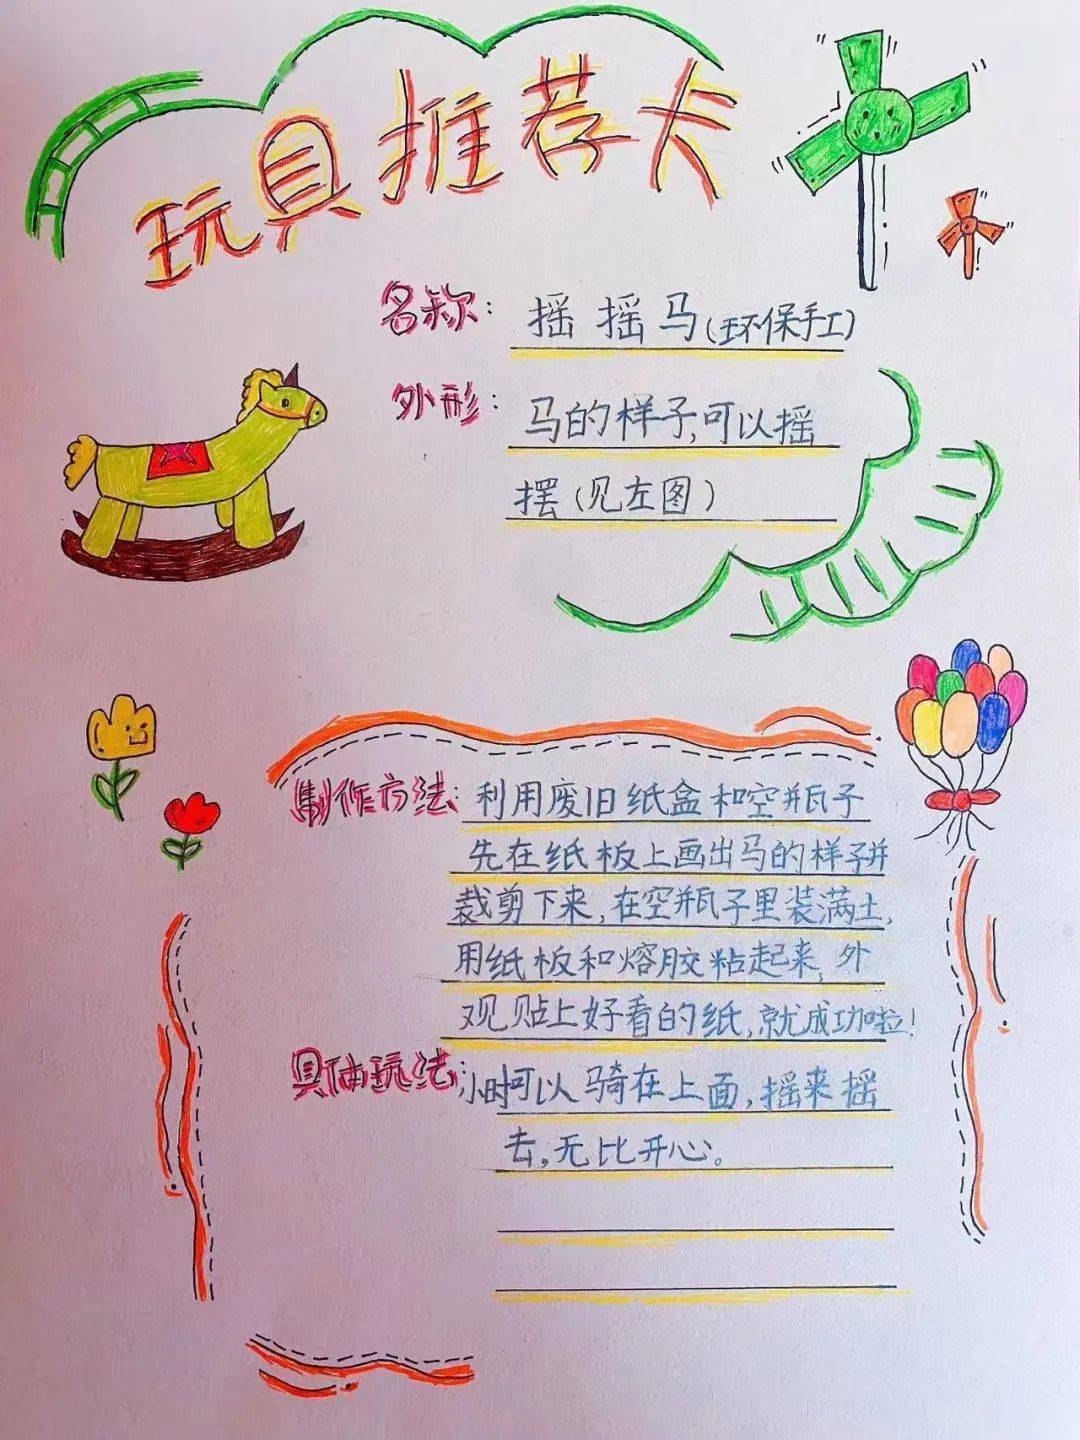 玩具推荐卡
名称：摇摇马(环保手工)
外形：马的样子,可以摇
摆(见左图)
制作方法：利用废旧纸盒和空瓶子
先在纸板上画出马的样子并
裁剪下来,在空瓶子里装满土,
用纸板和熔胶粘起来,外
观贴上好看的纸,就成功啦!
具体玩法：小时可以骑在上面,摇来摇
去,无比开心。